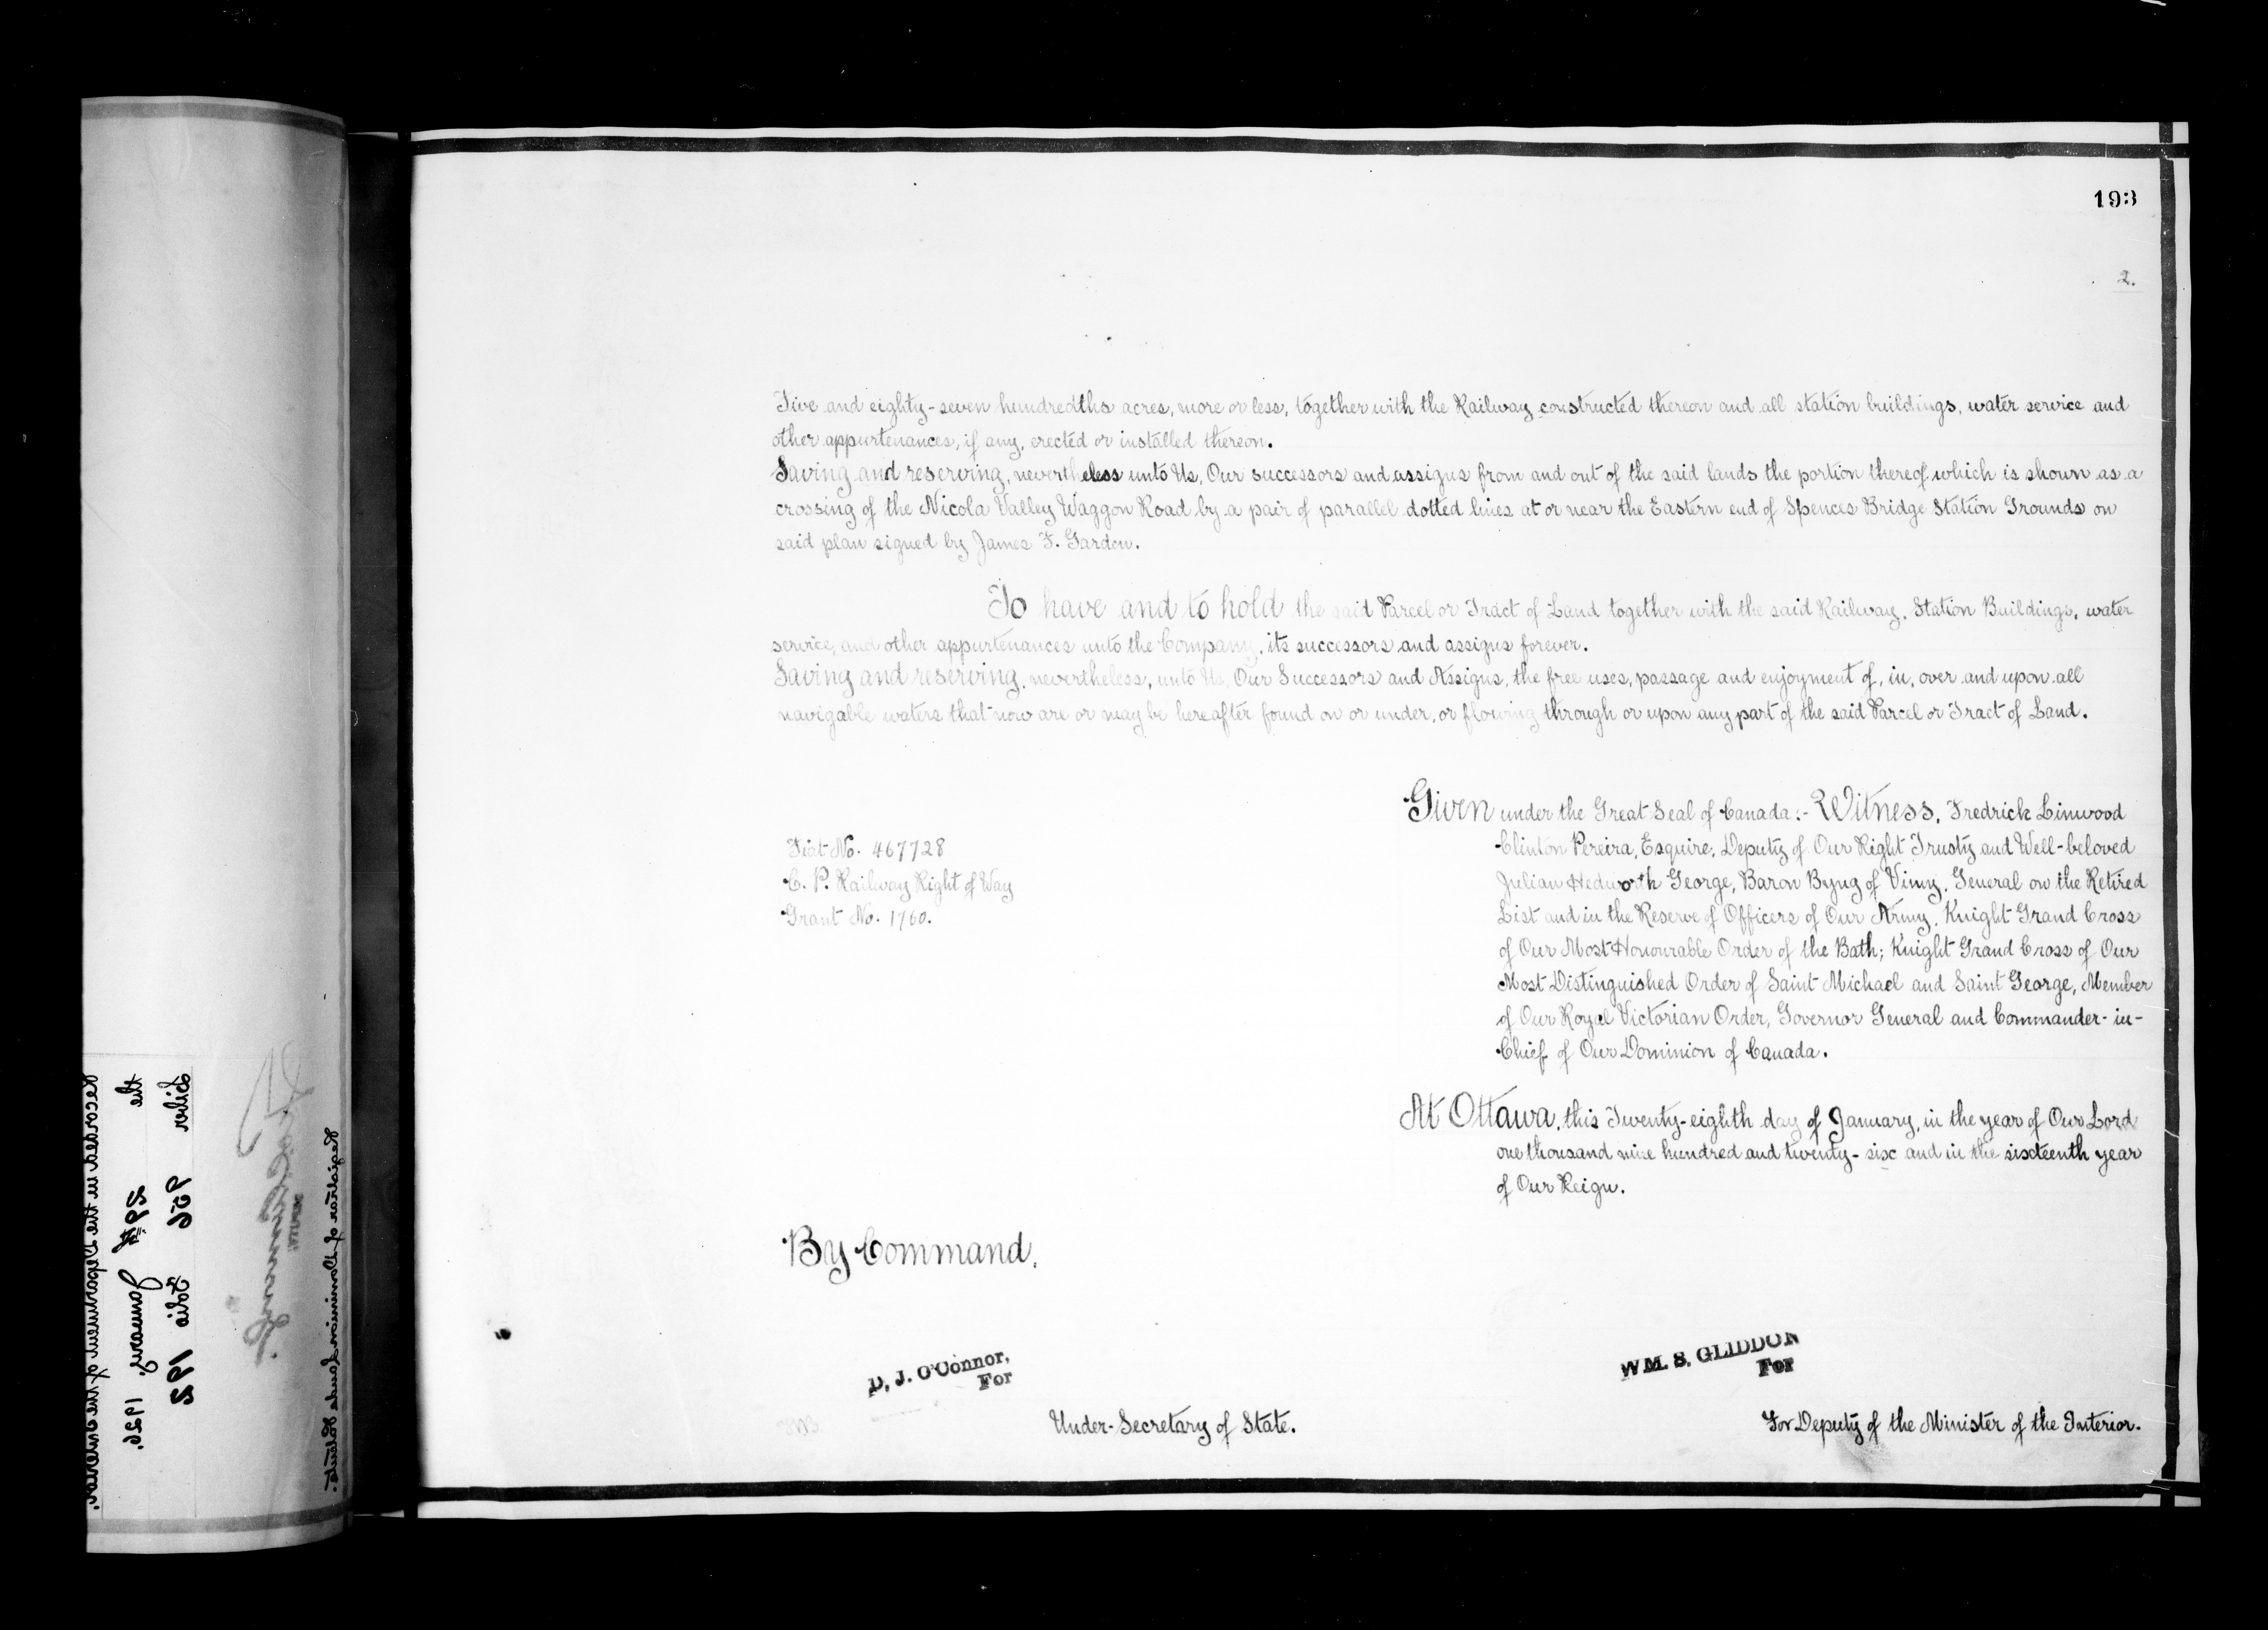 193
2.
Five and eighty-seven hundredths acres, more or less, together with the Railway constructed thereon and all station buildings, water service and
other appurtenances, if any, erected or installed thereon.
Saving and reserving, nevertheless unto Us, Our successors and assigns from and out of the said lands the portion thereof which is shown as a
crossing of the Nicola Valley Waggon Road by a pair of parallel dotted lines at or near the Eastern end of Spences Bridge Station Grounds on
said plan signed by James F. Garden.
To have and to hold the said Parcel or Tract of Land together with the said Railway, Station Buildings, water
service, and other appurtenances unto the Company, its successors and assigns forever.
Saving and reserving, nevertheless, unto Us, Our Successors and Assigns, the free uses, passage and enjoyment of, in, over and upon all
navigable waters that now are or may be hereafter found on or under, or flowing through or upon any part of the said Parcel or Tract of Land.
Given under the Great Seal of Canada:- Witness, Fredrick Linwood
Clinton Pereira, Esquire, Deputy of Our Right Trusty and Well-beloved
Julian Hedworth George, Baron Byng of Vimy, General on the Retired
List and in the Reserve of Officers of Our Army, Knight Grand Cross
of Our Most Honourable Order of the Bath; Knight Grand Cross of Our
Most Distinguished Order of Saint Michael and Saint George, Member
of Our Royal Victorian Order, Governor General and Commander-in-
Chief of Our Dominion of Canada.
Fiat No. 467728
C. P. Railway Right of Way
Grant No. 1760.
At Ottawa, this Twenty-eighth day of January, in the year of Our Lord
one thousand nine hundred and twenty-six and in the sixteenth year
of Our Reign.
By Command,
D. J. O'Connor,
For
Under-Secretary of State.
WM. S. GLIDDON
For
For Deputy of the Minister of the Interior.
Recorded in the Department of the Interior,
the 29th January 1926.
Liber 956 Folio 192
Registrar of Dominion Lands Patents.